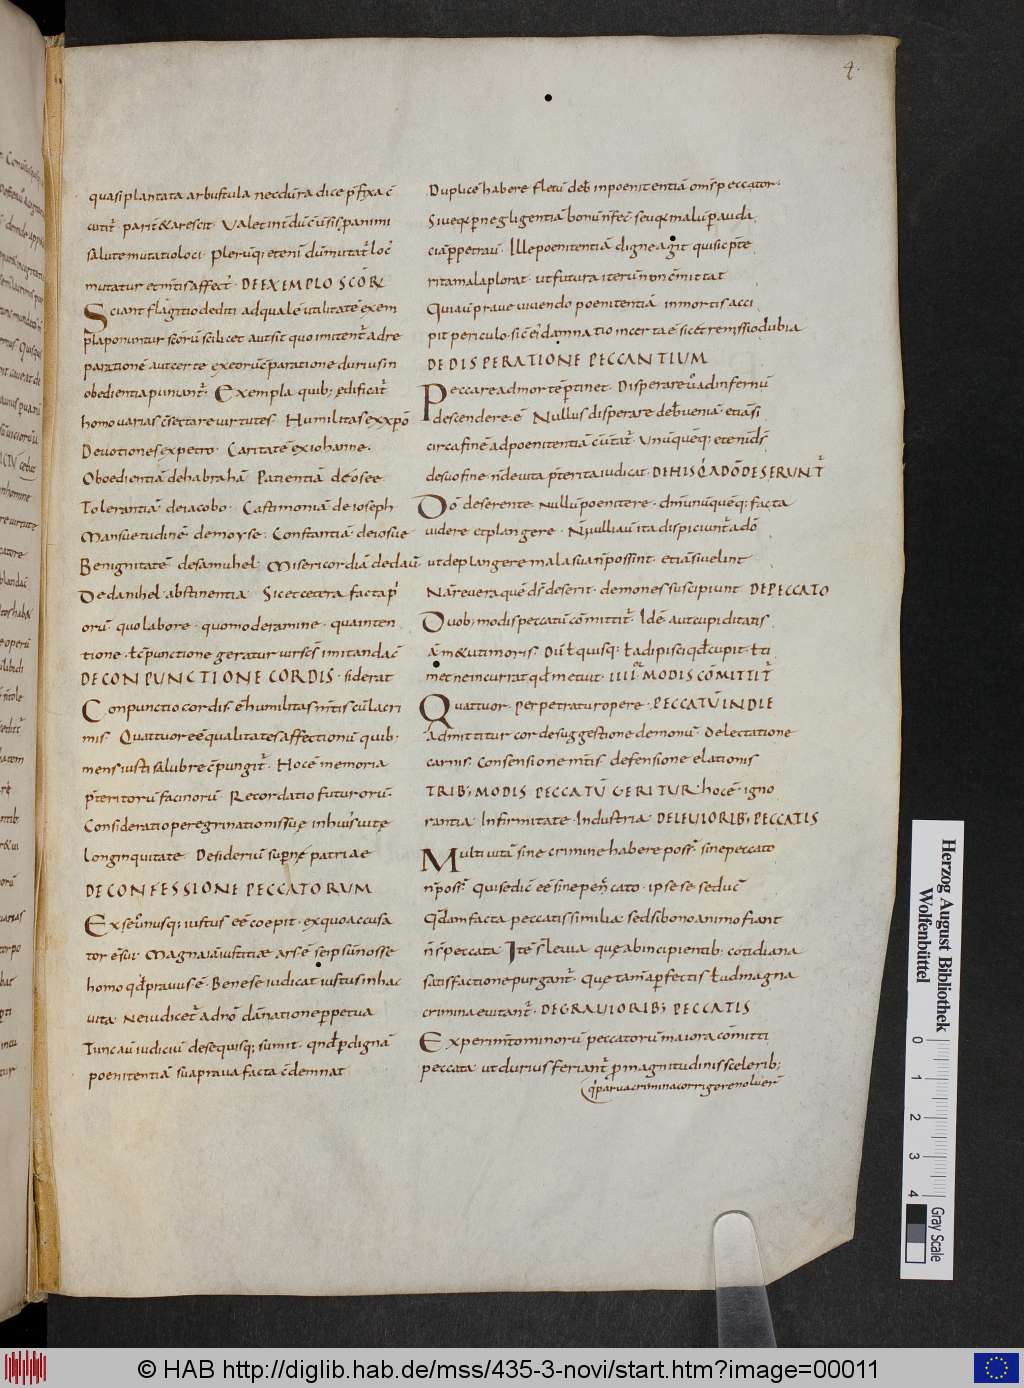 4.
quasi plantata arbustula necdum radice p̄fixa c̄
cutit̄ parit & arescit. Valet int̄dū c̄uersis p animi
salute mutatio loci. Plerūq; etenī dū mutat̄ loc'
mutatur et m̄tis affect'. DE EXEMPLO SCŌR
Sciant flagitio dediti ad quale utilitatē exem
pla ponuntur sc̄orū scilicet aut sit quo imitent̄ ad re
parationē aut certe ex eorū c̄paratione durius in
obedientia puniant̄. Exempla quib; ędificat̄
homo uarias c̄sectare uirtutes. Humilitas ex xp̄o
Deuotiones ex petro. Caritatē ex iohanne.
Oboedientiā de habrahā. Patientiā de osee
Tolerantiā de iacobo. Castimoniā de ioseph
Mansuetudinē de moyse. Constantiā de iosue
Benignitatē de samuhel. Misericordiā de dauid
De danihel abstinentia. Sic et cetera facta p̄
orū. quo labore. quo moderamine. qua inten
tione. ł c̄punctione geratur uir scs̄ imitandac̄
DE CONPUNCTIONE CORDIS. siderat
Conpunctio cordis ē humilitas m̄tis cū lacri
mis. Quattuor eē qualitates affectionū quib;
mens iusti salubre c̄pungit̄. Hoc ē memoria
p̄teritorū facinorū. Recordatio futurorū
Consideratio peregrinationis suę in hui' uitę
longinquitate. Desideriū supernę patriae
DE CONFESSIONE PECCATORUM
Ex se un'usq; iustus eē coepit. ex quo accusa
tor ē sui. Magna iā iustitiae ars ē se ipsū nosse
homo qđ prauus ē. Bene se iudicat iustus in hac
uita. Ne iudicet̄ a dō dānatione perpetua
Tunc aū iudiciū de se quisq; sumit. qn̄ đ p dignā
poenitentiā sua praua facta c̄demnat
Duplicē habere fletū deb in poenitentiā om̄s peccator.
Siue q p negligentiā bonū n̄ fec' seu q malū p auda
cia p̄petrauit. Ille poenitentiā digne agit qui sic p̄te
rita mala plorat. ut futura iterū non c̄mittat
Qui aū praue uiuendo poenitentiā in mortis acci
pit periculo. sic ei' damnatio incerta ē sicet remissio dubia
DE DISPERATIONE PECCANTIUM
Peccare ad morte ptinet. Disperare uō ad infernū
descendere ē. Nullus disperare deb ueniā etiā si
circa finē ad poenitentiā c̄uertat̄. Unūquēq; etenī ds̄
de suo fine. n̄ de uita p̄terita iudicat. DE HIS Q A DŌ DESERUNT̄
Dō deserente nullū poenitere. dm̄ unūquēq; facta
uidere et plangere. Nonnulli aū ita dispiciunt̄ a dō
ut deplangere mala sua n̄ possint. etiā si uelint
Nā reuera quē ds̄ deserit. demones suscipiunt DE PECCATO
Duob; modis peccatū c̄mittit̄. Id ē. aut cupiditatis
am̄ & uti moris. Dū ł quisq; ł adipisci qđ cupit. ł ti
met ne incurrat qđ metuit. IIII MODIS CŌMITTIT̄
Quattuor. perpetratur opere. PECCATŪ IN DIE
admittitur corde suggestione demonū. Delectatione
carnis. Consensione m̄tis. defensione elationis
TRIB; MODIS PECCATŪ GERITUR hoc ē. igno
rantia Infirmitate Industria. DE LEUIORIB; PECCATIS
Multi uitā sine crimine habere poss̄. sine peccato
n̄ poss̄. Qui se dic̄ eē sine peccato. ipse se seduc̄
Qđam facta peccatis similia sed si bono animo fiant
n̄ s̄ peccata. Itē s̄ leuia quę ab incipientib; cotidiana
satisfactione purgant̄. Quę tam̄ a pfectis ł ud magna
crimina euitant̄. DE GRAUIORIB; PECCATIS
Experim̄to minorū peccatorū maiora cōmitti
peccata. ut durius feriant̄ p magnitudinis scelerib;
q̄ parua crimina corrigere noluer̄
Herzog August Bibliothek
Wolfenbüttel
0 1 2 3 4
Gray Scale
© HAB http://diglib.hab.de/mss/435-3-novi/start.htm?image=00011